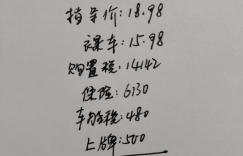 指导价:18.98
裸车:15.98
购置税:14142
保险:6130
车船税:480
上牌:500